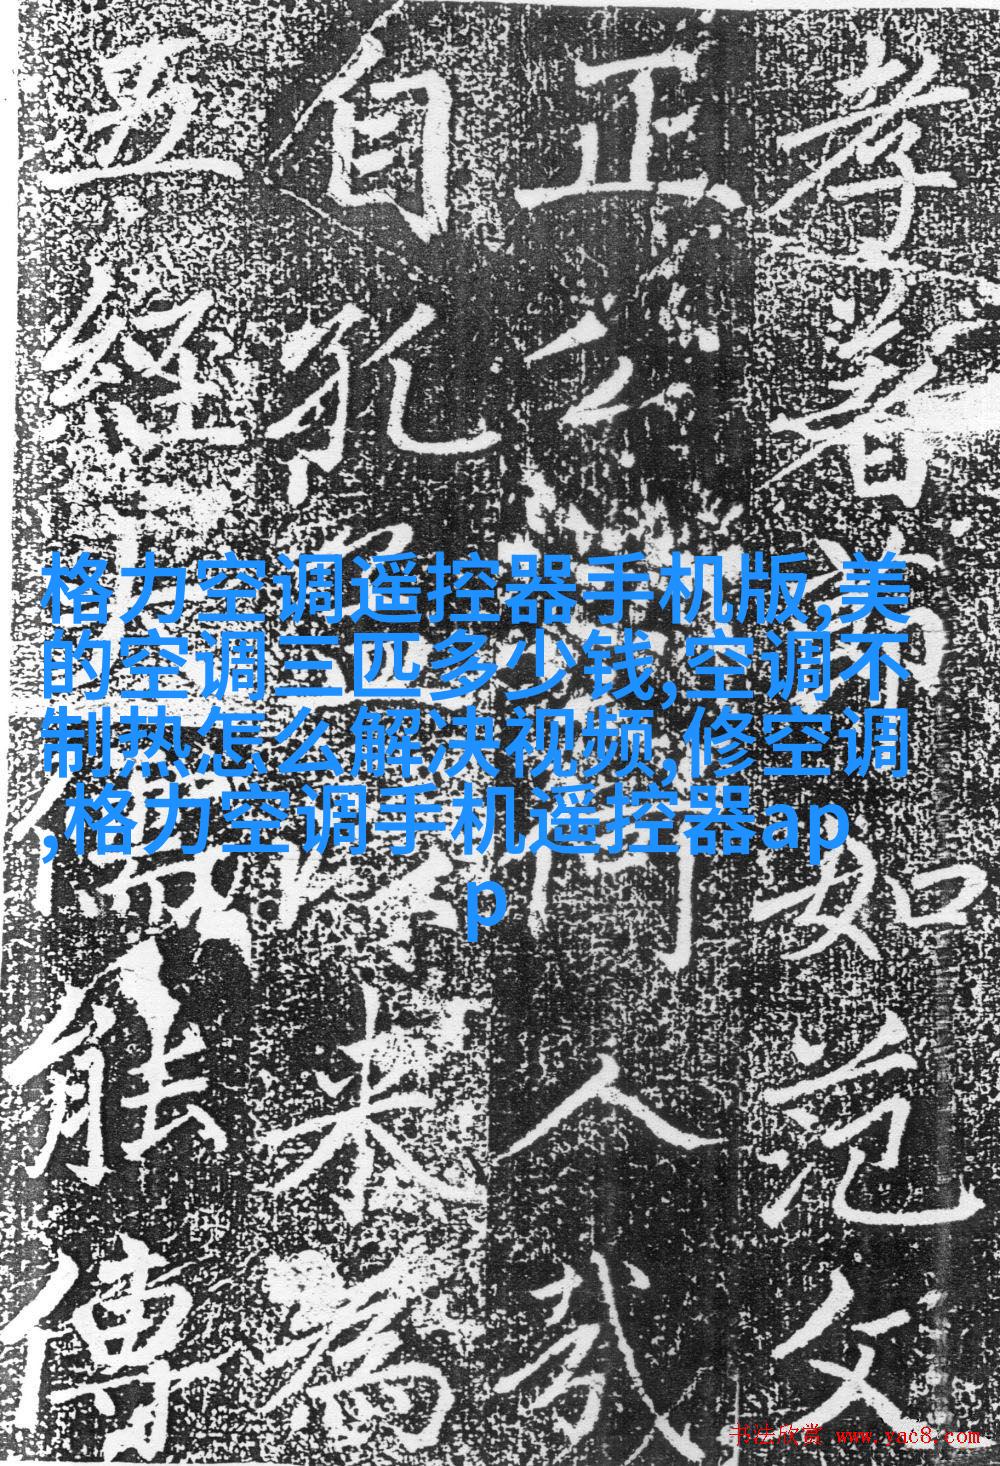 格力空调遥控器手机版,美
的空调三匹多少钱,空调不
制热怎么解决视频,修空调
,格力空调手机遥控器ap
p
孝者如范文
正公門人
自孔来為
五經儒能傳
书法欣赏 www.yac8.com